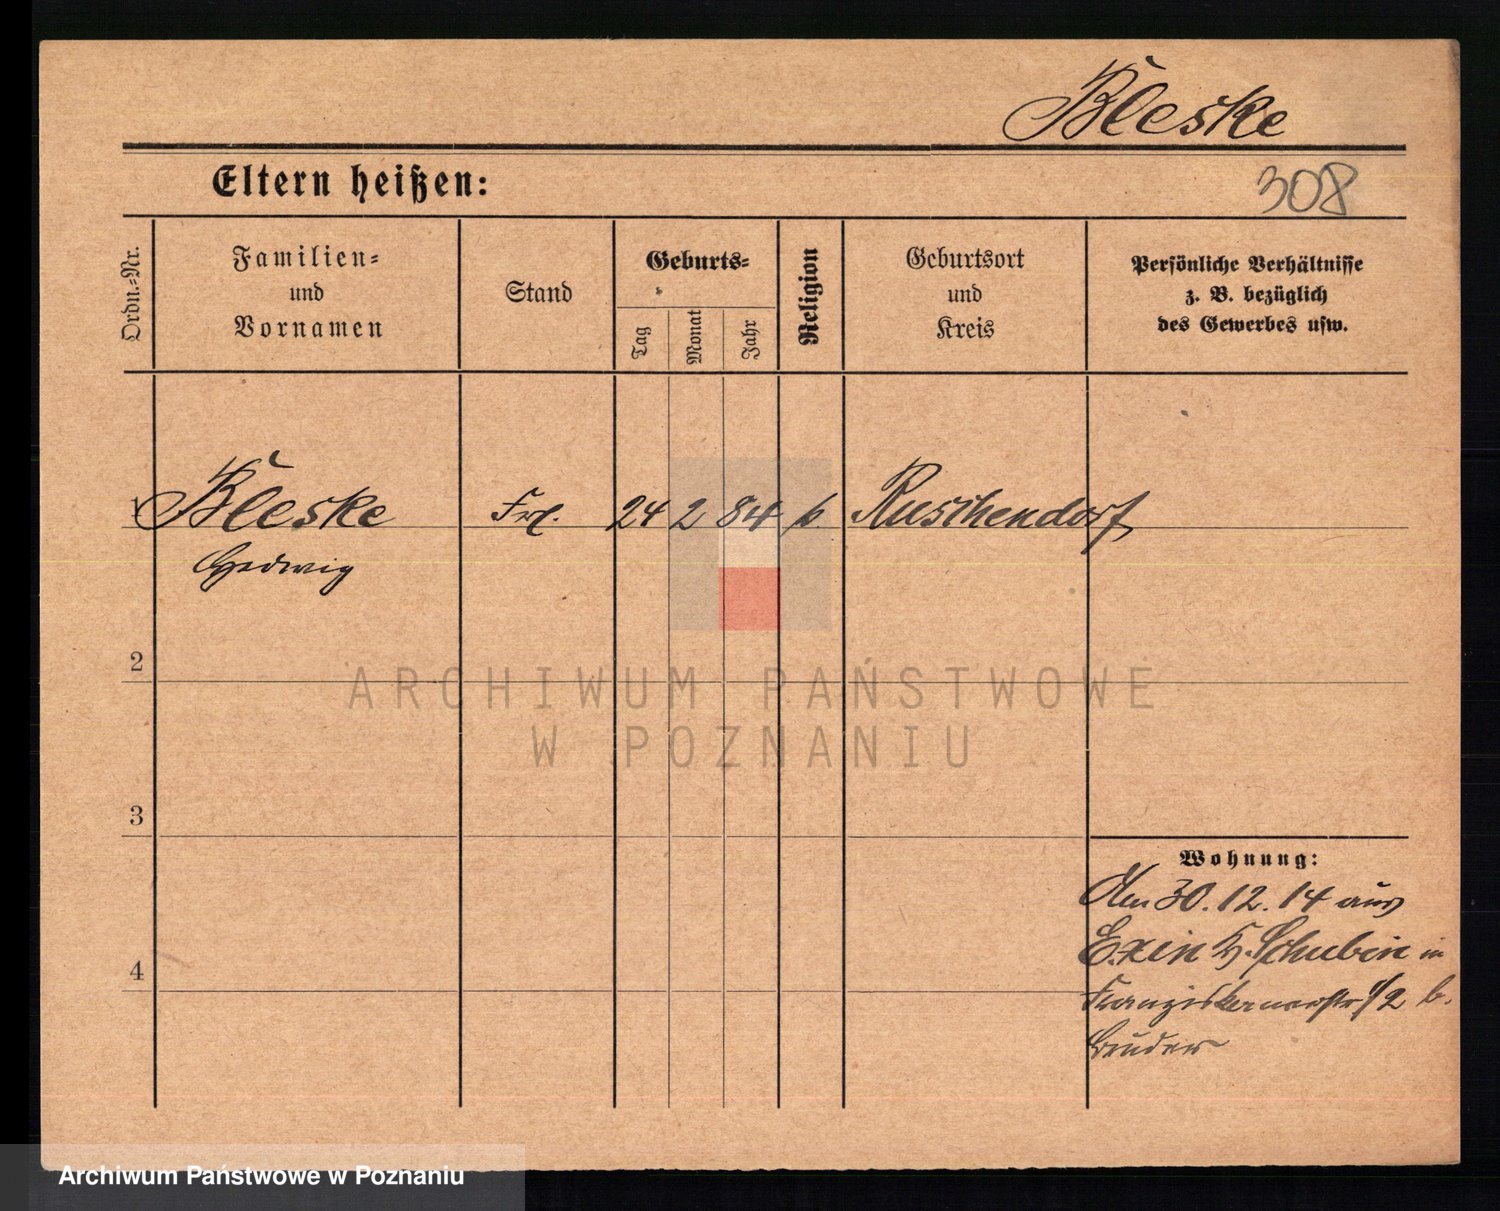 Bleske
Eltern heißen:
308
Ordn.-Nr.
Familien-
und
Vornamen
Stand
Geburts-
Tag
Monat
Jahr
Religion
Geburtsort
und
Kreis
Persönliche Verhältnisse
z. B. bezüglich
des Gewerbes usw.
1 Bleske Frl. 24 2 84 k Ruschendorf
Hedwig
2
ARCHIWUM PAŃSTWOWE
W POZNANIU
3
Wohnung:
Am 30. 12. 14 aus
Exin K. Schubin in
Franziskanerstr 1/2 b.
Bruder
4
Archiwum Państwowe w Poznaniu